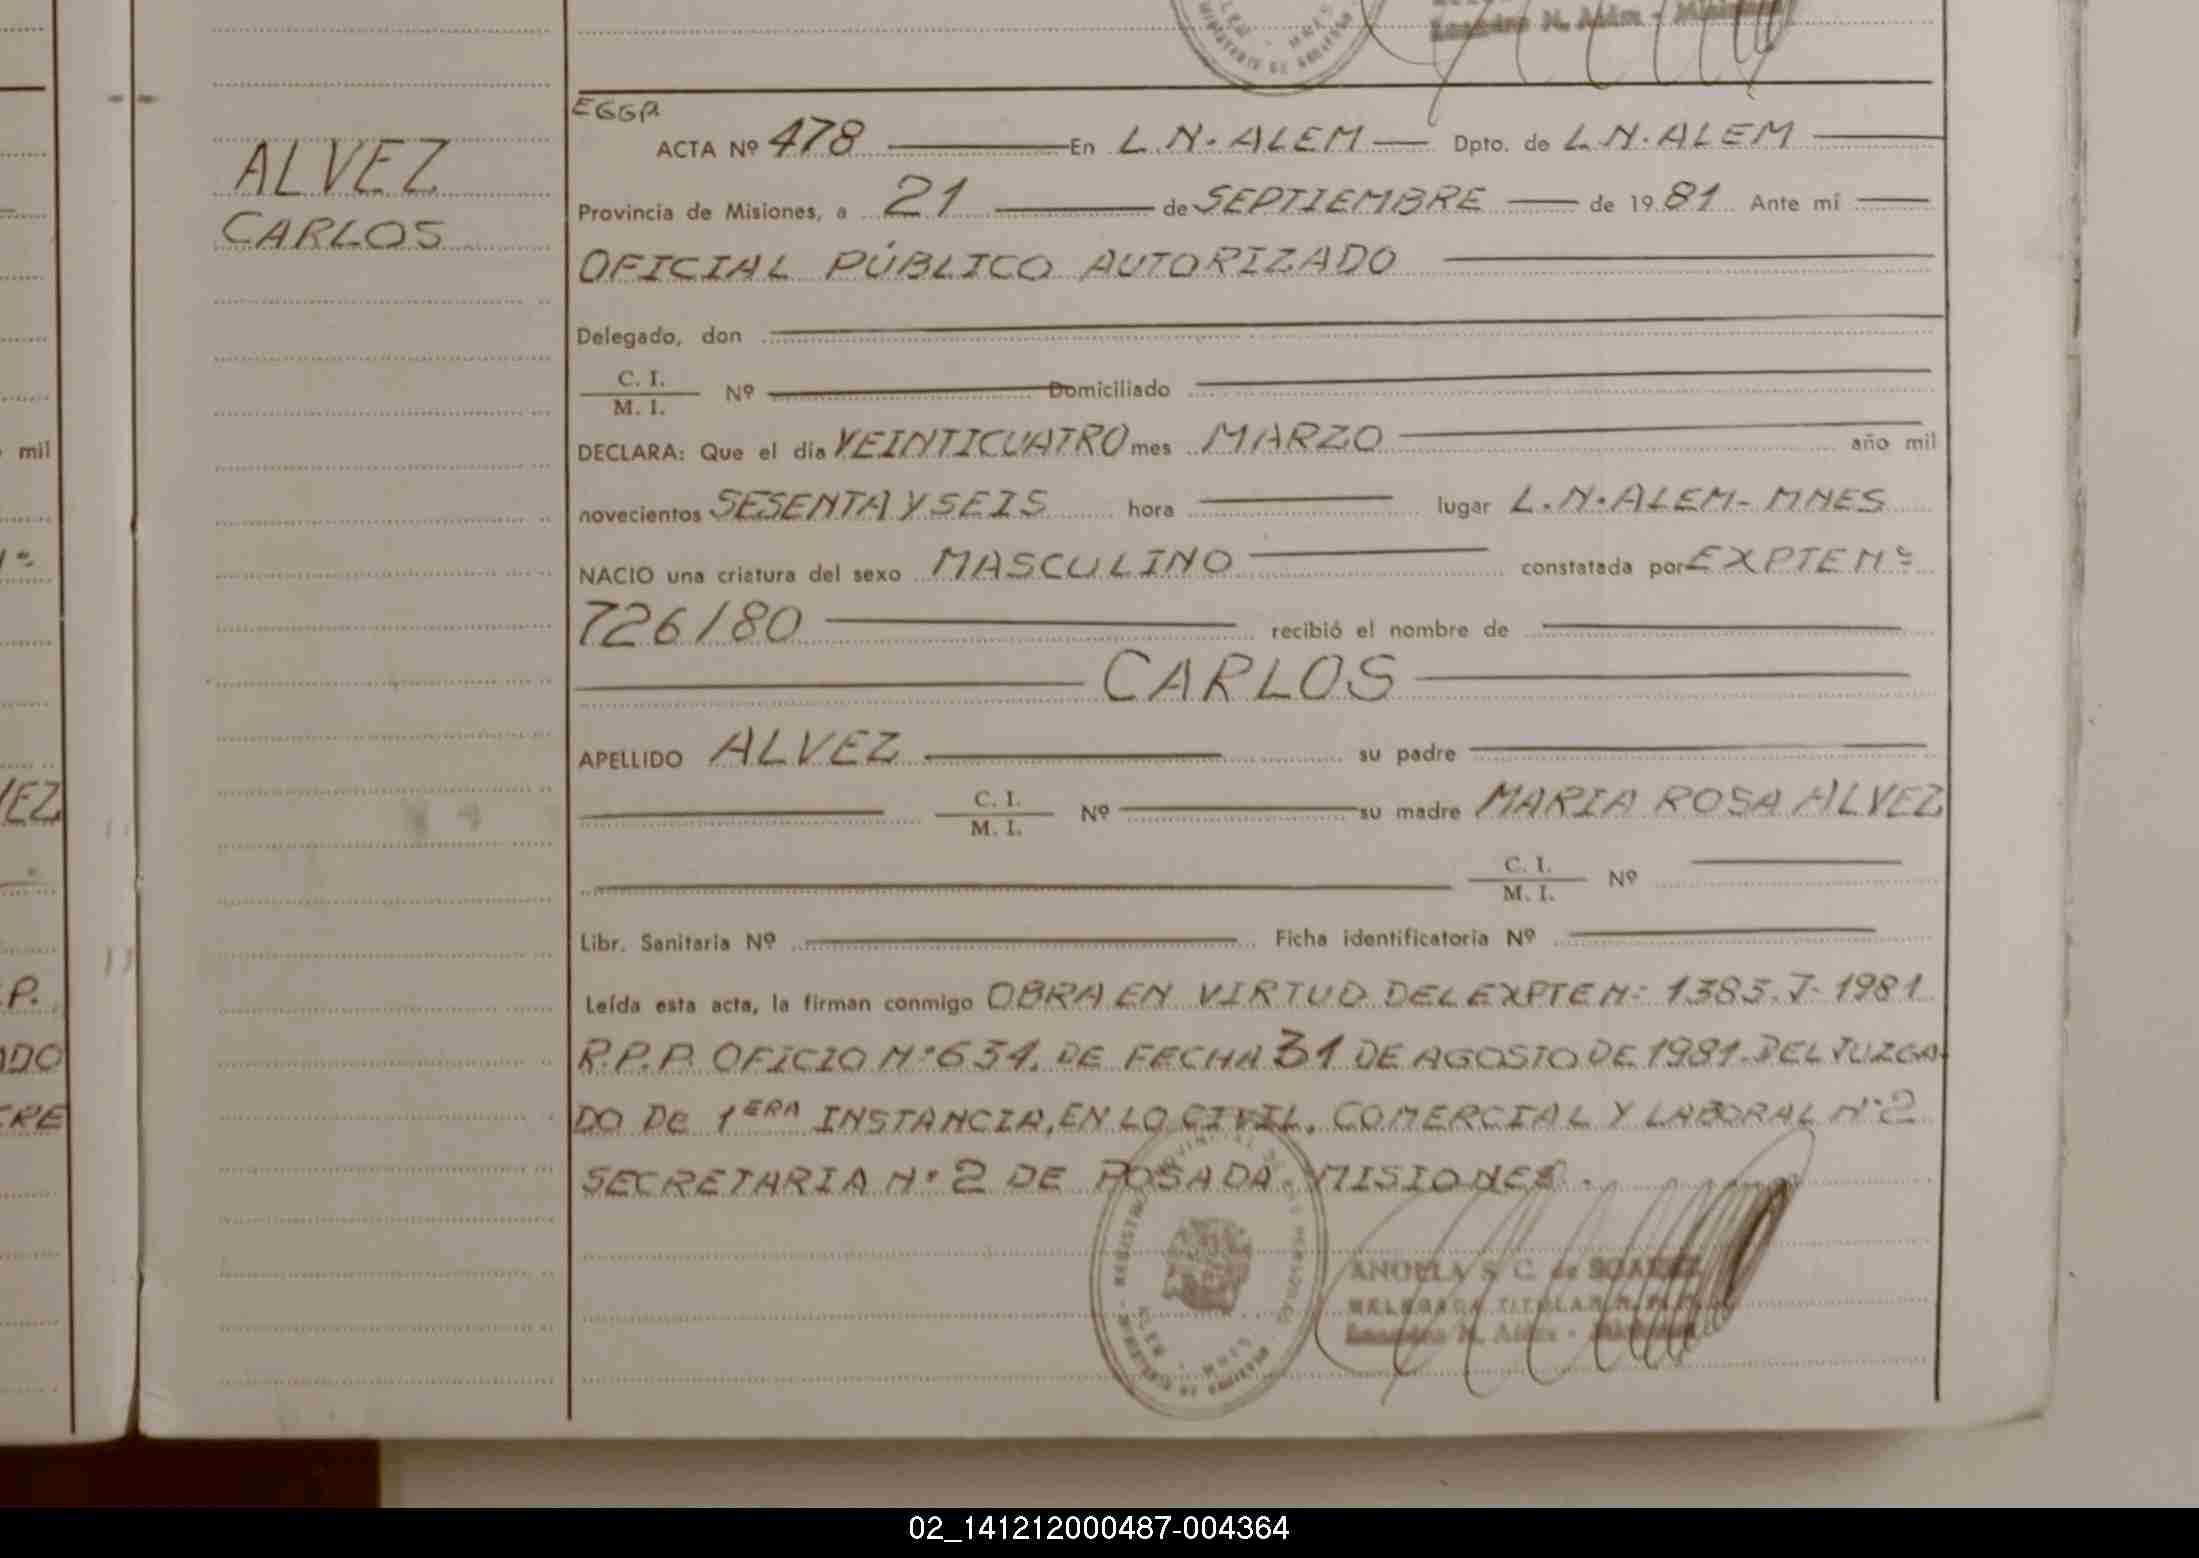 Leandro N. Alem - Misiones
EGGR
ALVEZ
CARLOS
ACTA Nº 478 En L.N. ALEM Dpto. de L.N. ALEM
Provincia de Misiones, a 21 de SEPTIEMBRE de 1981 Ante mí
OFICIAL PÚBLICO AUTORIZADO
Delegado, don
C. I.
M. I. Nº Domiciliado
DECLARA: Que el día VEINTICUATRO mes MARZO año mil
novecientos SESENTA Y SEIS hora lugar L.N. ALEM - MNES
NACIO una criatura del sexo MASCULINO constatada por EXPTE Nº
726/80 recibió el nombre de
CARLOS
APELLIDO ALVEZ su padre
C. I.
M. I. Nº su madre MARIA ROSA ALVEZ
C. I.
M. I. Nº
Libr. Sanitaria Nº Ficha identificatoria Nº
Leída esta acta, la firman conmigo OBRA EN VIRTUD DEL EXPTE Nº 1383-J-1981
R.P.P. OFICIO Nº 634. DE FECHA 31 DE AGOSTO DE 1981. DEL JUZGA-
DO De 1ERA INSTANCIA, EN LO CIVIL, COMERCIAL Y LABORAL Nº 2
SECRETARIA Nº 2 DE POSADA. MISIONES.
ANGELA S. C. de SUAREZ
DELEGADA TITULAR R. P. P.
Leandro N. Alem - Misiones
mil
VEZ
P.
ADO
CRE
02_141212000487-004364